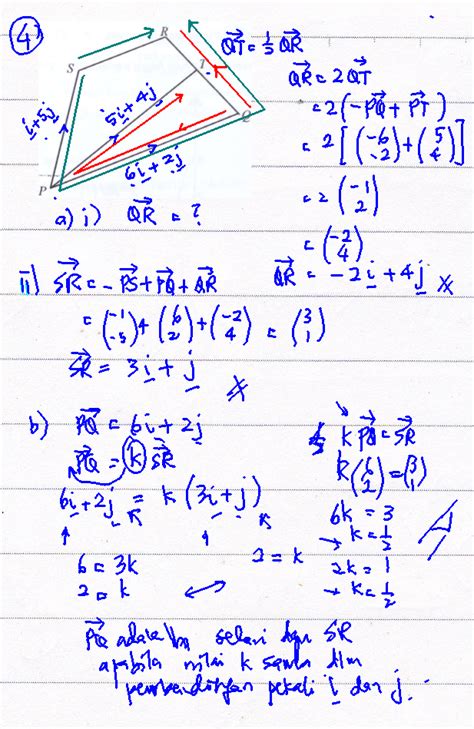 4
R
S
T
Q
P
i+5j
5i+4j
6i+2j
QT = 1/2 QR
QR = 2QT
= 2(-PQ + PT)
= 2[(-6 -2) + (5 4)]
= 2(-1 2)
= (-2 4)
QR = -2i + 4j
a) i) QR = ?
ii) SR = -PS + PQ + QR
= (-1 -5) + (6 2) + (-2 4) = (3 1)
SR = 3i + j
b) PQ = 6i + 2j
PQ = k SR
6i + 2j = k(3i + j)
6 = 3k
2 = k
2 = k
k PQ = SR
k(6 2) = (3 1)
6k = 3
→ k = 1/2
2k = 1
→ k = 1/2
PQ adalah selari dgn SR
apabila nilai k sama dlm
perbandingan pekali i dan j.